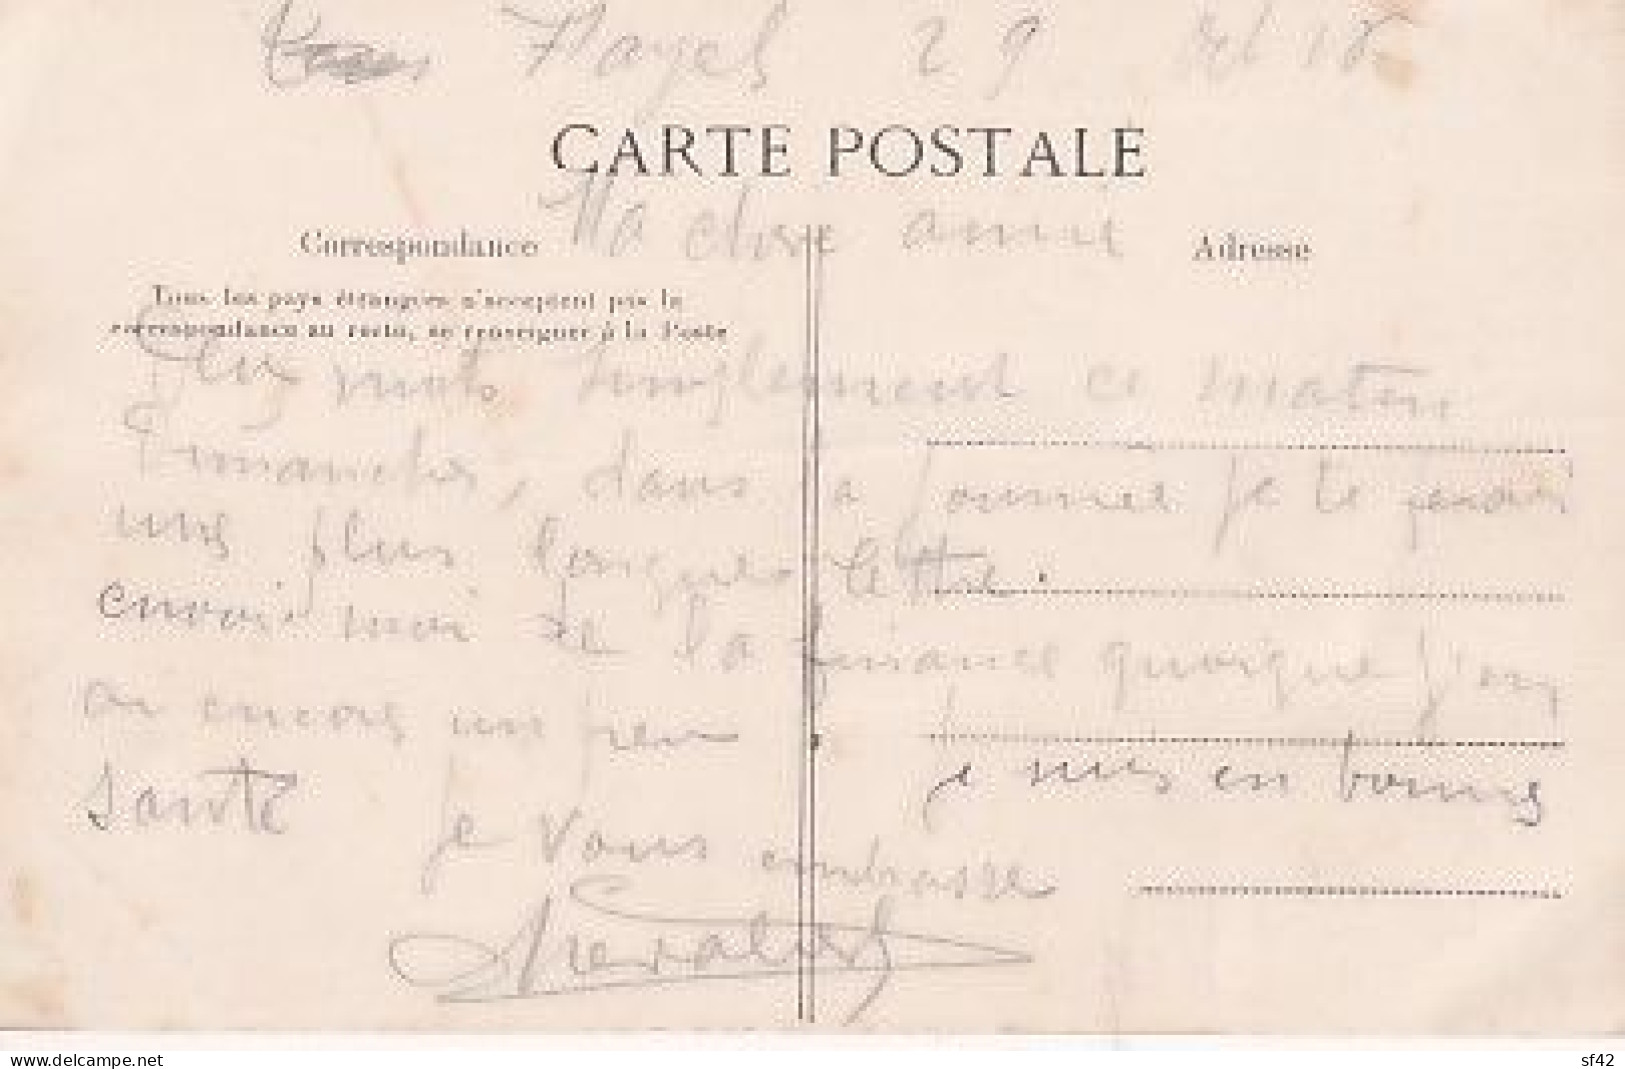 29
CARTE POSTALE
Ma chere amie
Correspondance
Adresse
Tous les pays étrangers n'acceptent pas la
correspondance au recto, se renseigner à la Poste
Deux mots simplement ce matin
Dimanche, dans la journee je te ferai
une plus longue lettre.
envoi moi de la finance quoique j'en
ai encore un peu je suis en bonne
santé je vous embrasse
www.delcampe.net
sf42